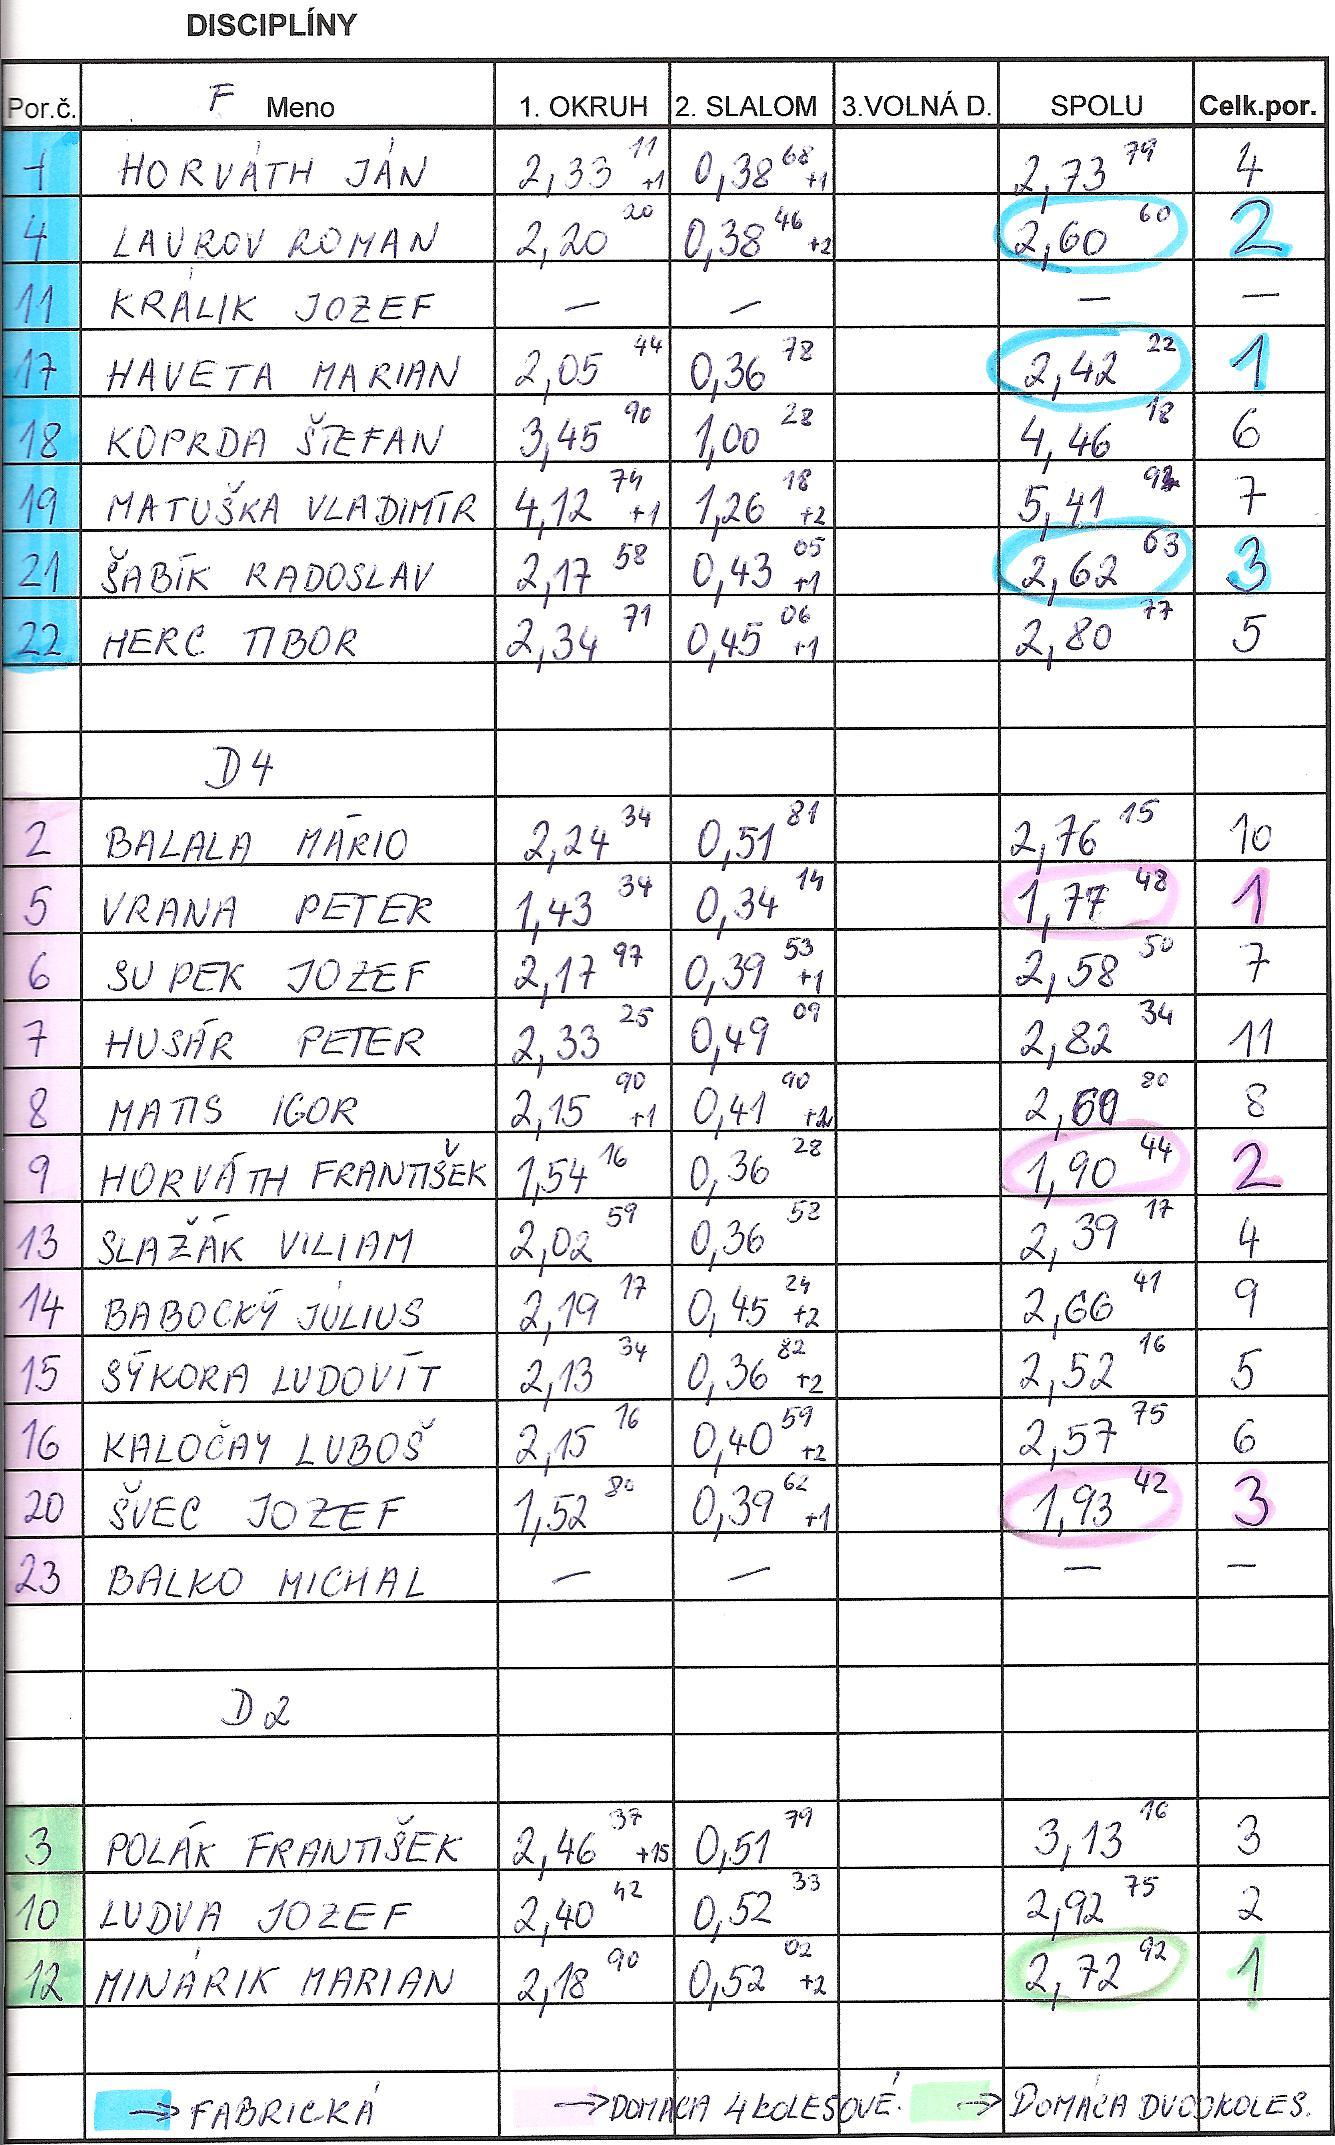 DISCIPLÍNY
Por.č. F Meno 1. OKRUH 2. SLALOM 3.VOLNÁ D. SPOLU Celk.por.
1 HORVÁTH JÁN 2,33 11 +1 0,38 68 +1 2,73 79 4
4 LAUROV ROMAN 2,20 20 0,38 46 +2 2,60 60 2
11 KRÁLIK JOZEF – – – –
17 HAVETA MARIAN 2,05 44 0,36 78 2,42 22 1
18 KOPRDA ŠTEFAN 3,45 90 1,00 28 4,46 18 6
19 MATUŠKA VLADIMÍR 4,12 74 +1 1,26 18 +2 5,41 7
21 ŠABÍK RADOSLAV 2,17 58 0,43 05 +1 2,62 63 3
22 HERC TIBOR 2,34 71 0,45 06 +1 2,80 77 5
D4
2 BALALA MÁRIO 2,24 34 0,51 81 2,76 15 10
5 VRANA PETER 1,43 34 0,34 14 1,77 48 1
6 SUPEK JOZEF 2,17 97 0,39 53 +1 2,58 50 7
7 HUSÁR PETER 2,33 25 0,49 09 2,82 34 11
8 MATIS IGOR 2,15 90 +1 0,41 90 +2 2,60 80 8
9 HORVÁTH FRANTIŠEK 1,54 16 0,36 28 1,90 44 2
13 SLAŽÁK VILIAM 2,02 59 0,36 58 2,39 17 4
14 BABOCKÝ JÚLIUS 2,19 17 0,45 24 +2 2,66 41 9
15 SÝKORA LUDOVÍT 2,13 34 0,36 82 +2 2,52 16 5
16 KALOČAY LUBOŠ 2,15 16 0,40 59 +2 2,57 75 6
20 ŠVEC JOZEF 1,52 80 0,39 62 +1 1,93 42 3
23 BALKO MICHAL – – – –
D2
3 POLÁK FRANTIŠEK 2,46 37 +15 0,51 79 3,13 16 3
10 LUDVA JOZEF 2,40 42 0,52 33 2,92 75 2
12 MINÁRIK MARIAN 2,18 90 0,52 02 +2 2,72 92 1
→ FABRICKÁ → DOMÁCA 4 KOLESOVÉ. → DOMÁCA DVOJKOLES.